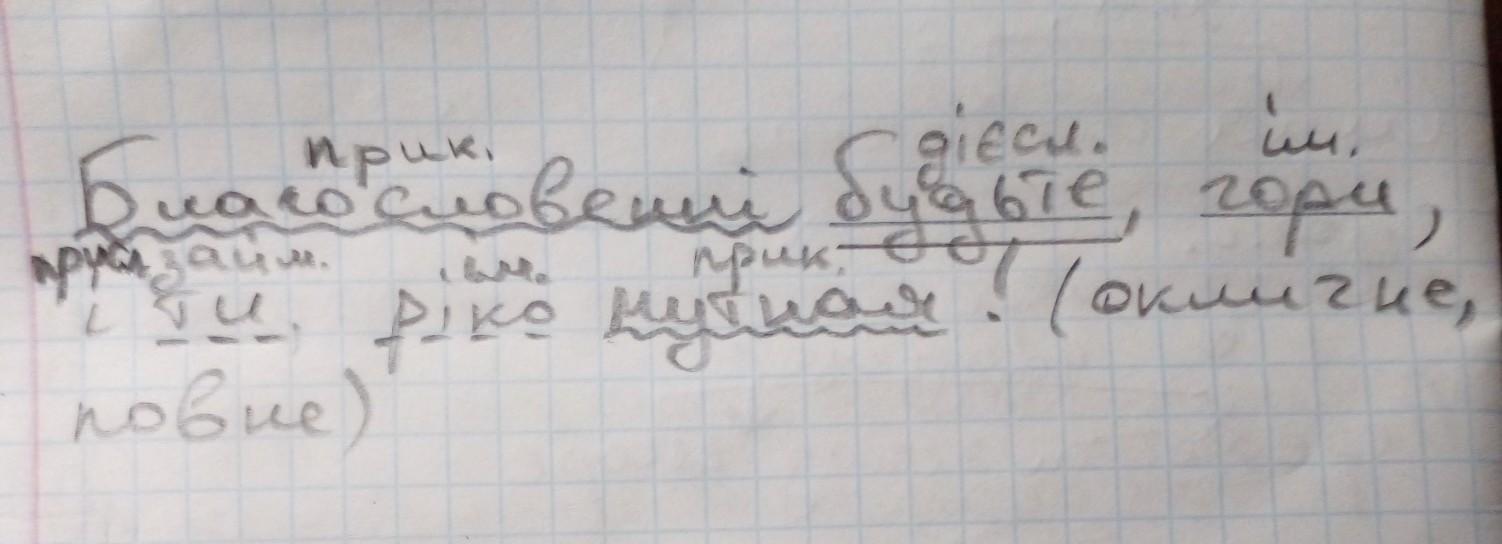 прик. дієсл. ім.
Благословенні будьте, гори,
займ. ім. прик.
і ти, ріко мутная! (окличне,
повне)